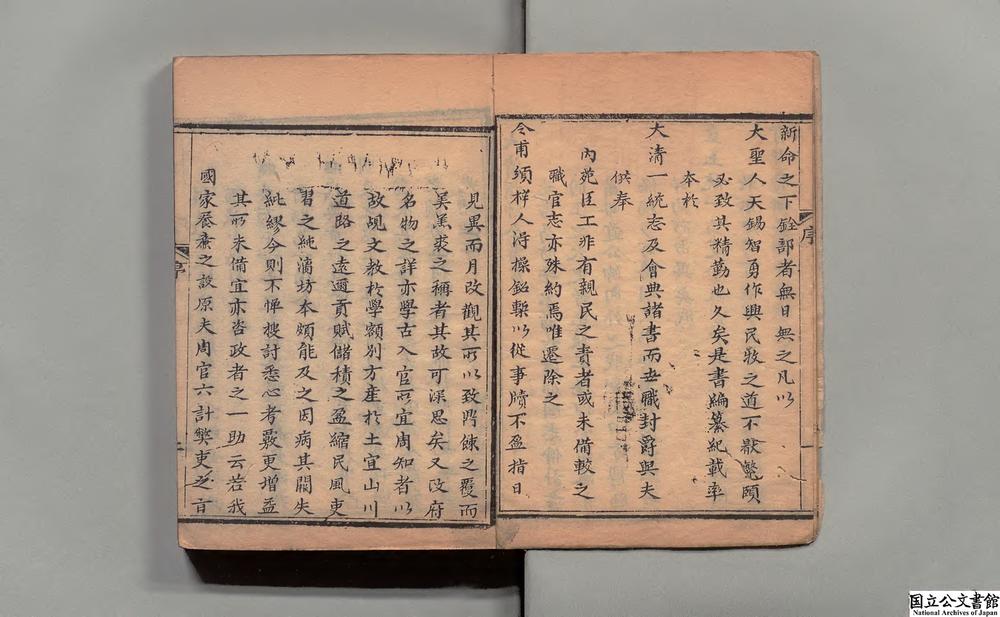 新命之下銓部者無日無之凡以
大聖人天錫智勇作興民牧之道不厭鄭頤
必致其精勤也久矣是書編纂紀載率
本於
大清一統志及會典諸書而世職封爵與夫
內苑臣工非有親民之責者或未備較之
供奉
職官志亦殊約焉唯遷除之
令甫頒梓人淂操鉛槧以從事牘不盈指日
見異而月改觀其所以致鼎餗之覆而
羔裘之稱者其故可深思矣又改府
名物之詳亦學古入官所宜周知者以
故覘文教於學額別方產於土宜山川
道路之遠邇貢賦儲積之盈縮民風吏
習之純漓坊本頗能及之因病其闕失
紕繆今則不憚搜討悉心考覈更增益
其所未備宜亦咨政者之一助云若我
國家養廉之設原夫周官六計獘吏之言
序
一
序
國立公文書館
National Archives of Japan